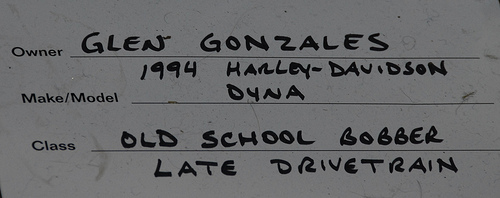 Owner GLEN GONZALES
1994 HARLEY-DAVIDSON
Make/Model DYNA
Class OLD SCHOOL BOBBER
LATE DRIVETRAIN